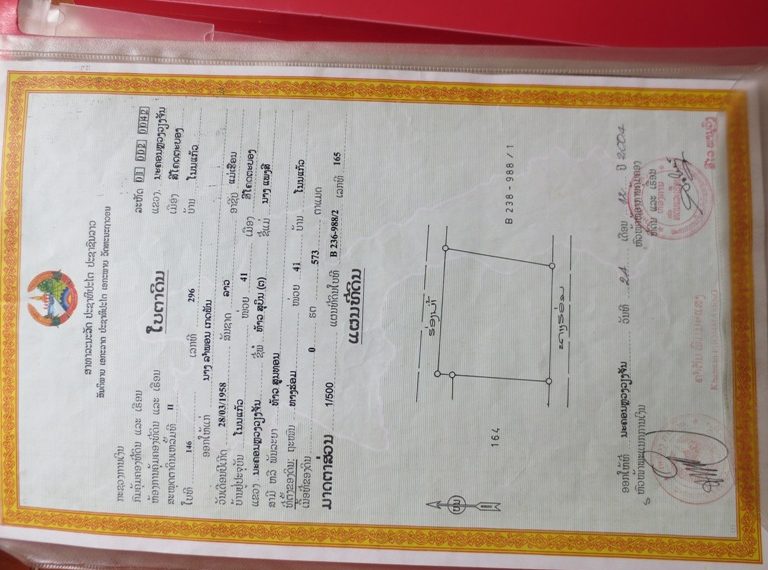 ສາທາລະນະລັດ ປະຊາທິປະໄຕ ປະຊາຊົນລາວ
ສັນຕິພາບ ເອກະລາດ ປະຊາທິປະໄຕ ເອກະພາບ ວັດທະນາຖາວອນ
ກະຊວງການເງິນ
ກົມຄຸ້ມຄອງທີ່ດິນ ແລະ ເຮືອນ
ຫ້ອງການຄຸ້ມຄອງທີ່ດິນ ແລະ ເຮືອນ
ສະໝຸດຕາດິນເຫລັ້ມທີ II
ໃບຕາດິນ
ລະຫັດ 01 002 0042
ແຂວງ. ນະຄອນຫຼວງວຽງຈັນ
ເມືອງ ສີໂຄດຕະບອງ
ໃບທີ 146 ເລກທີ 296 ບ້ານ ໂນນແກ້ວ
ອອກໃຫ້ແກ່ ນາງ ລຳພອນ
ວັນເດືອນປີເກີດ 28/03/1958 ສັນຊາດ ລາວ ອາຊີບ ແມ່ເຮືອນ
ບ້ານຢູ່ປະຈຸບັນ ໂນນແກ້ວ ໜ່ວຍ 41 ເມືອງ ສີໂຄດຕະບອງ
ແຂວງ ນະຄອນຫຼວງວຽງຈັນ ຊື່ພໍ່ ທ້າວ ສຸບິນ (ຕ) ຊື່ແມ່ ນາງ ແພງສີ
ສາມີ ຫລື ພັນລະຍາ ທ້າວ ສູນທອນ
ທີ່ຕັ້ງຂອງດິນ: ຖະໜົນ ທາງຮ່ອມ ໜ່ວຍ 41 ບ້ານ ໂນນແກ້ວ
ເນື້ອທີ່ຂອງດິນ 0 ຮຕ 573 ຕາແມັດ
ມາດຕາສ່ວນ 1/500 ແຜນທີ່ດິນໃບທີ B 236-988/2 ເລກທີ 165
ແຜນທີ່ດິນ
ຮ່ອງນ້ຳ
B 238 - 988 / 1
164
ທາງຮ່ອມ
ອອກໃຫ້ທີ່ ນະຄອນຫຼວງວຽງຈັນ ວັນທີ 24 ເດືອນ 12 ປີ 2004
ທີ່ດິນ ແລະ ເຮືອນ